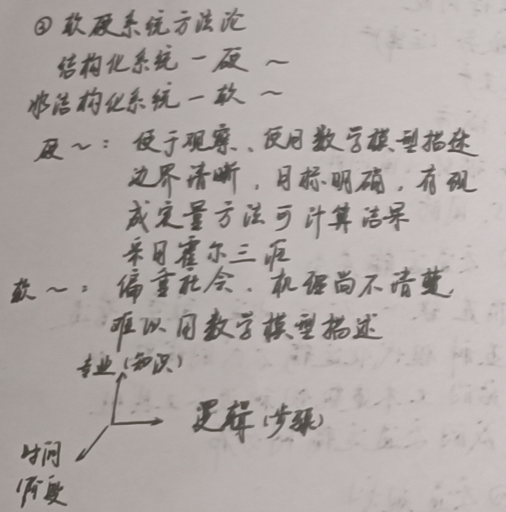 ② 软硬系统方法论
结构化系统 — 硬 ~
非结构化系统 — 软 ~
硬 ~：便于观察、使用数学模型描述
边界清晰，目标明确，有现
成定量方法可计算结果
采用霍尔三
软 ~：偏重社会、机理尚不清楚
难以用数学模型描述
专业（知识）
逻辑（步骤）
时间
阶段